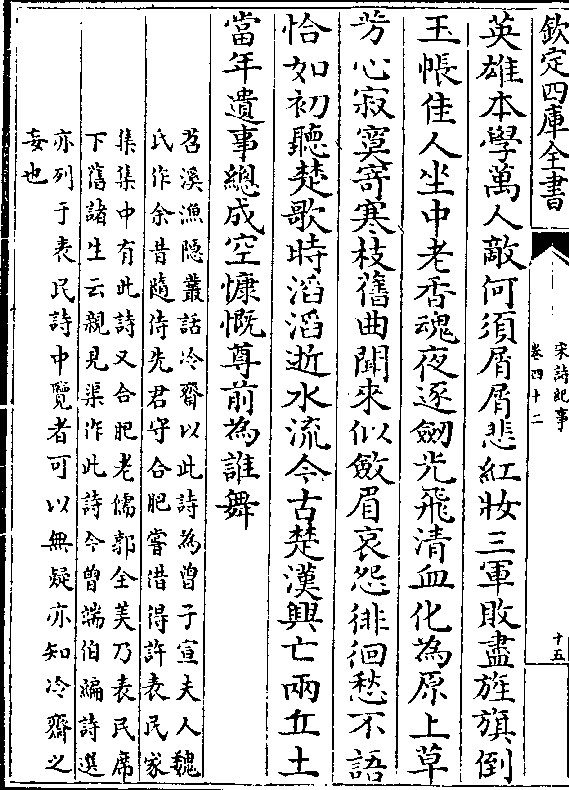 欽定四庫全書
宋詩紀事
卷四十二
十五
英雄本學萬人敵何須屑屑悲紅妝三軍敗盡旌旗倒
玉帳佳人坐中老香魂夜逐劒光飛清血化為原上草
芳心寂寞寄寒枝舊曲聞來似斂眉哀怨徘徊愁不語
恰如初聽楚歌時滔滔逝水流今古楚漢興亡兩丘土
當年遺事總成空慷慨尊前為誰舞
苕溪漁隠叢話冷齋以此詩為曾子宣夫人魏
氏作余昔隨侍先君守合肥嘗借得許表民家
集集中有此詩又合肥老儒郭全美乃表民席
下舊諸生云親見渠作此詩今曾端伯編詩選
亦列于表民詩中覽者可以無疑亦知冷齋之
妄也